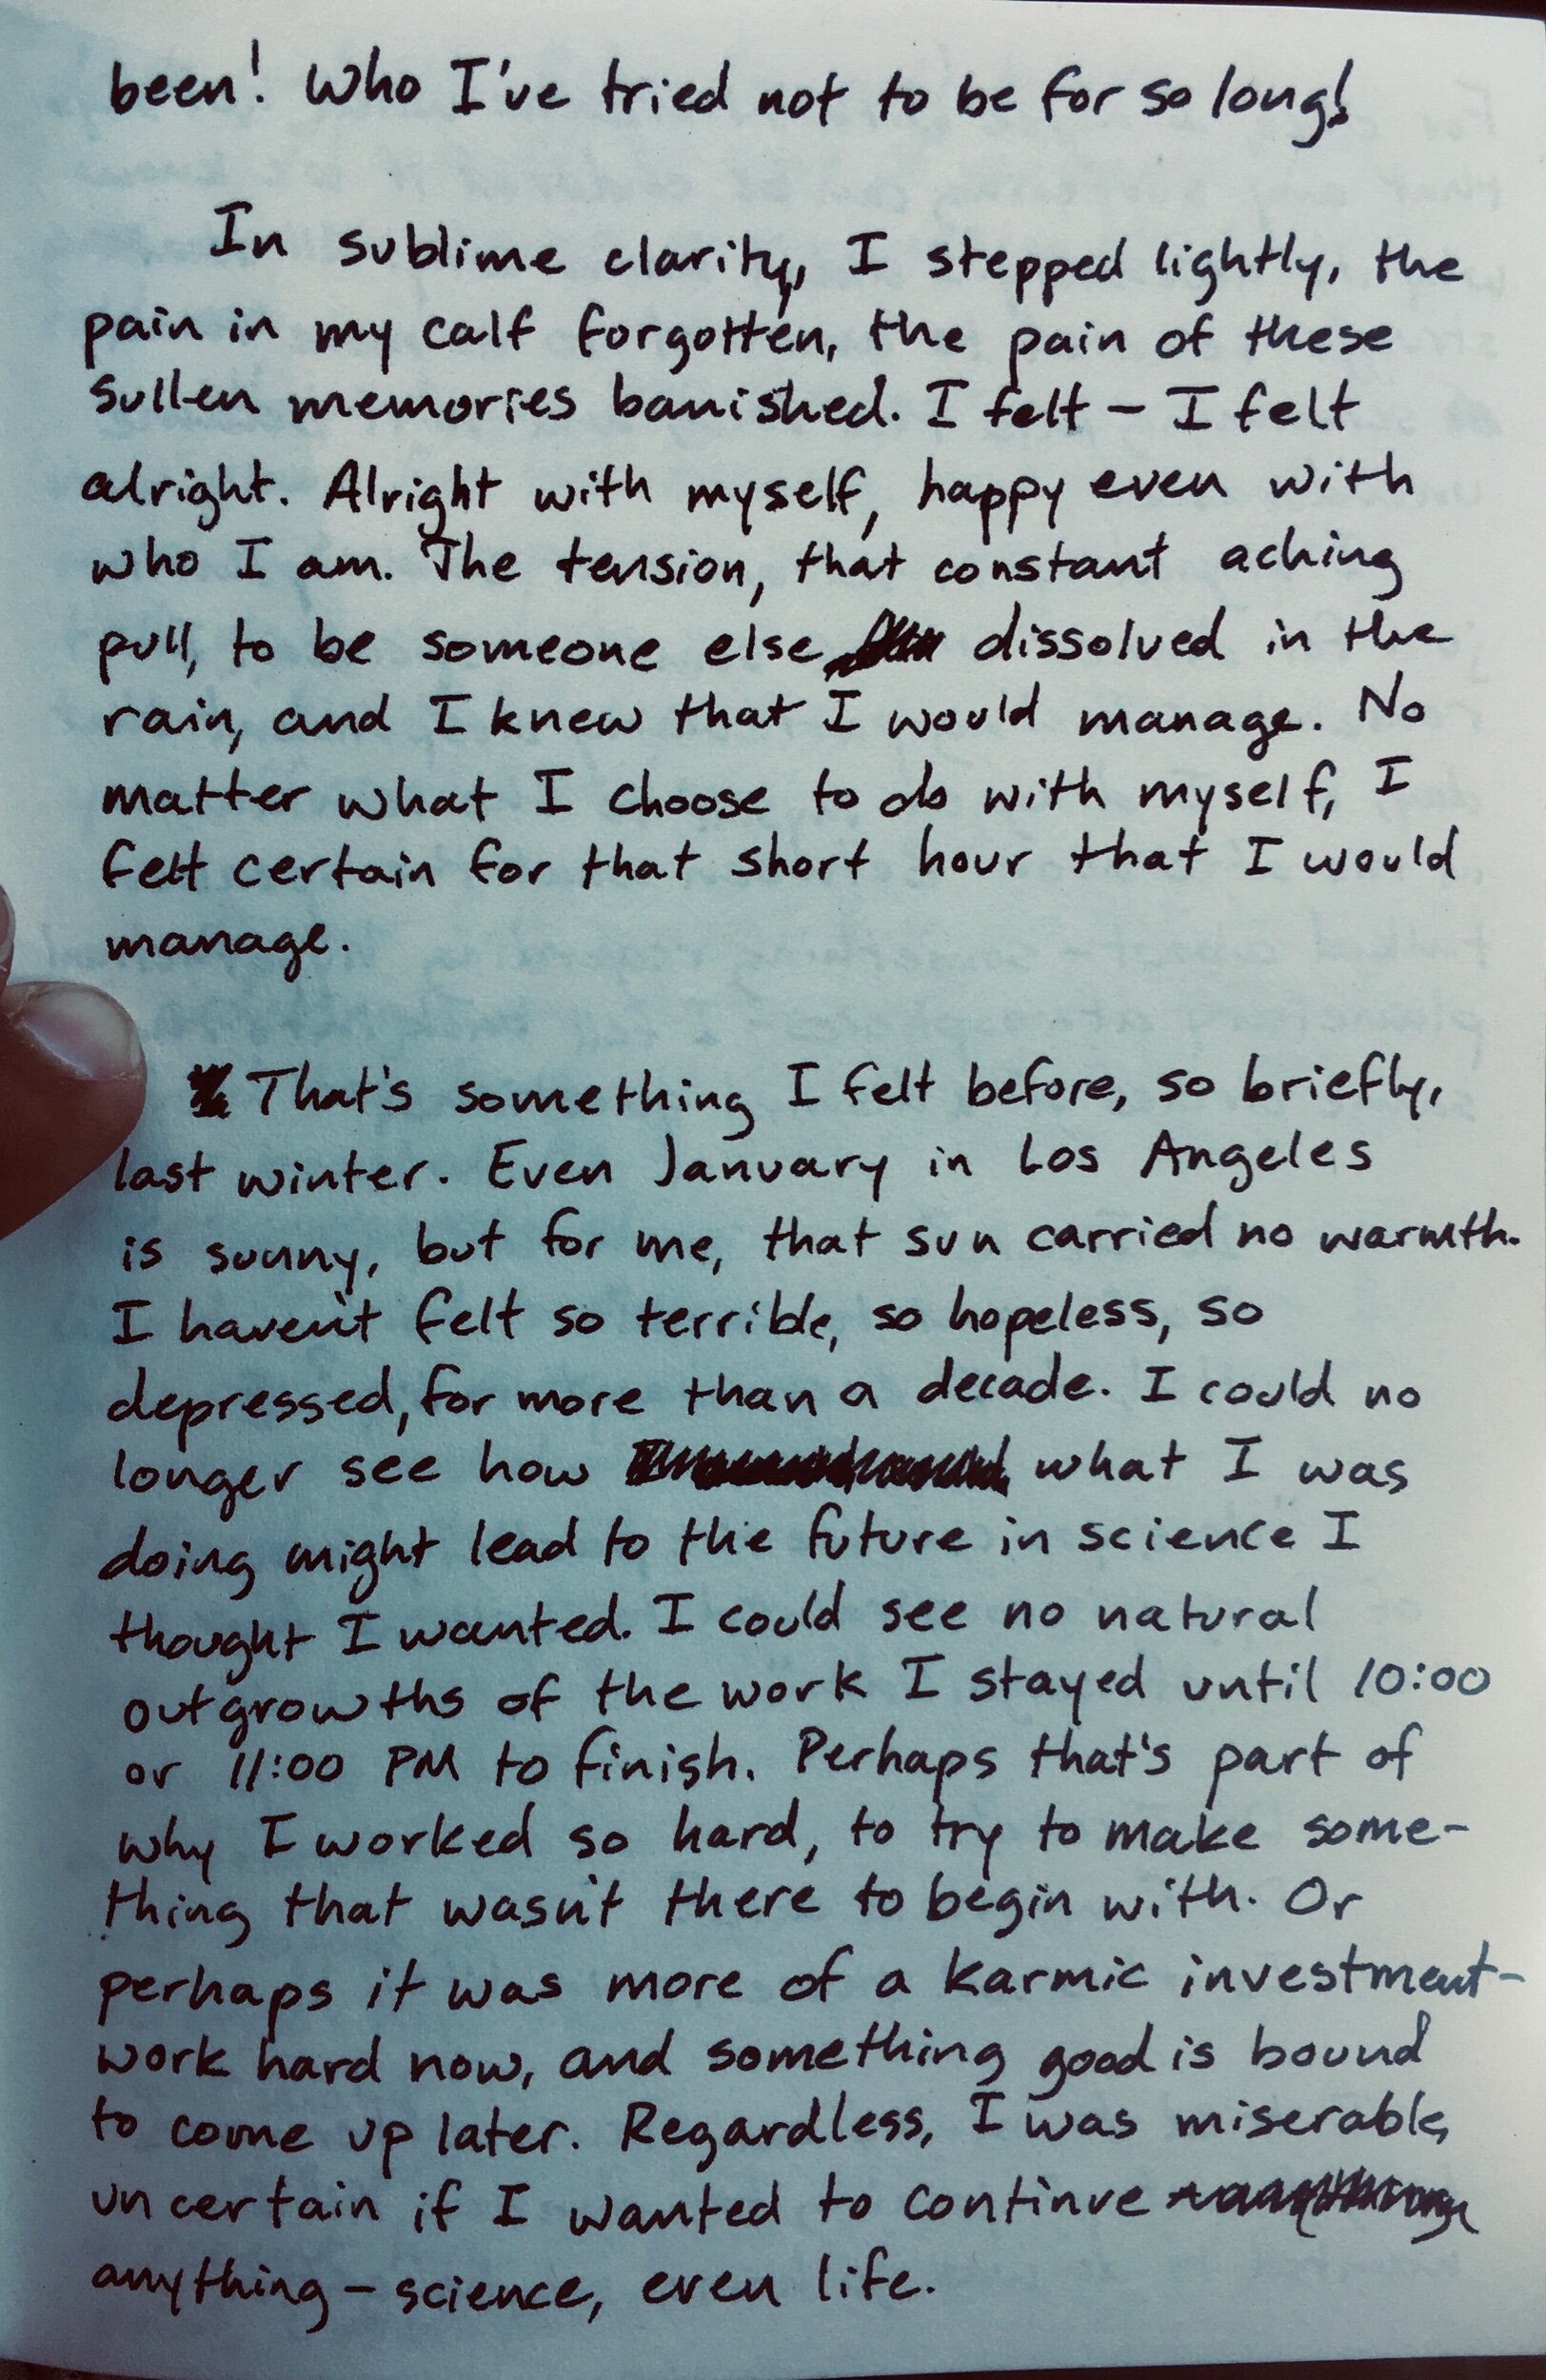 been! Who I've tried not to be for so long!
In sublime clarity, I stepped lightly, the
pain in my calf forgotten, the pain of these
sullen memories banished. I felt – I felt
alright. Alright with myself, happy even with
who I am. The tension, that constant aching
pull, to be someone else dissolved in the
rain, and I knew that I would manage. No
matter what I choose to do with myself, I
felt certain for that short hour that I would
manage.
That's something I felt before, so briefly,
last winter. Even January in Los Angeles
is sunny, but for me, that sun carried no warmth.
I haven't felt so terrible, so hopeless, so
depressed, for more than a decade. I could no
longer see how what I was
doing might lead to the future in science I
thought I wanted. I could see no natural
outgrowths of the work I stayed until 10:00
or 11:00 PM to finish. Perhaps that's part of
why I worked so hard, to try to make some-
thing that wasn't there to begin with. Or
perhaps it was more of a karmic investment –
work hard now, and something good is bound
to come up later. Regardless, I was miserable,
uncertain if I wanted to continue
anything – science, even life.